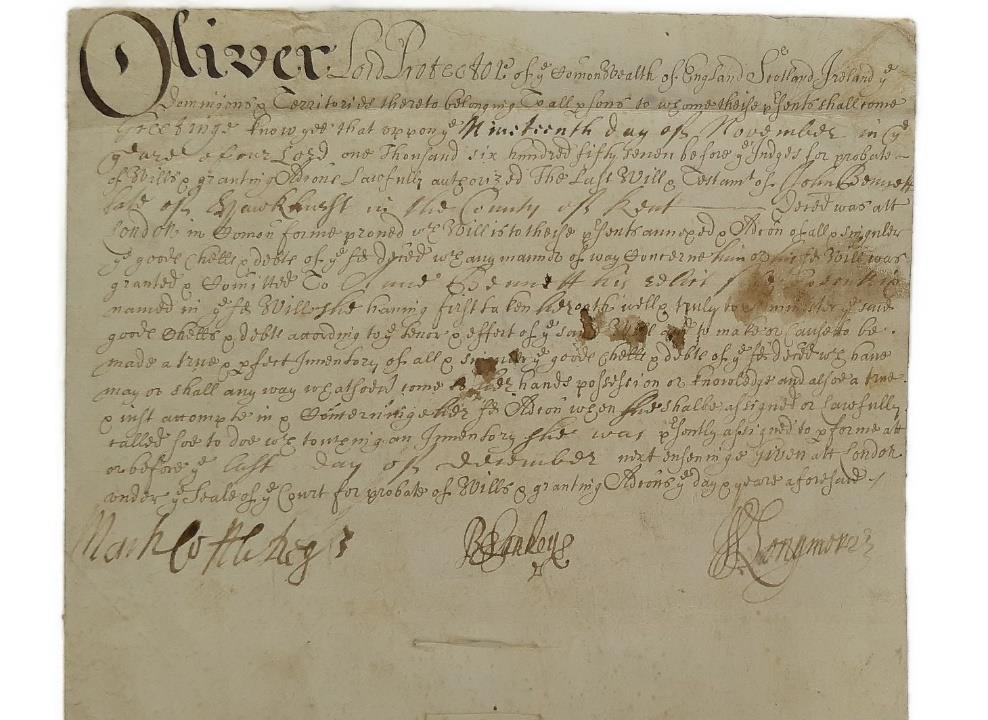 Oliver Lord Protector of ye Comonwealth of England Scotland Ireland & ye
Dominions & Territories thereto belonging To all psons to whome theise psents shall come
Greetinge Know yee that uppon ye Nineteenth day of November in ye
yeare of our Lord one Thousand six hundred fifty seven before ye Judges for probate
of Wills & granting Adcons Lawfully authorized The Last Will & Testamt of John Bennett
late of Hawkhurst in the County of Kent Deced was att
London in Comon forme proved wch Will is to theise psents annexed & Adcon of all & singuler
ye goods Chells & debts of ye sd deced wch any manner of way Concerne him or his sd Will was
granted & Comitted To Anne Bennett his relict
named in ye sd Will she having first taken her oath well & truly to administer ye said
goods Chells & debts according to ye tenor & effect of ye said Will and to make or Cause to be
made a true & pfect Inventory of all & singuler ye goods Chells & debts of ye sd deced wch have
may or shall any way whatsoevr come to her hands possession or knowledge and alsoe a true
& iust accompte in & Concerninge her sd Adcon when she shalbe assigned or Lawfully
called soe to doe wch touching an Inventory she was psently assigned to pforme att
or before ye last day of December next ensueinge Given att London
under ye Seale of ye Court for probate of Wills & granting Adcons ye day & yeare aforesaid
Mark Cottle Regr